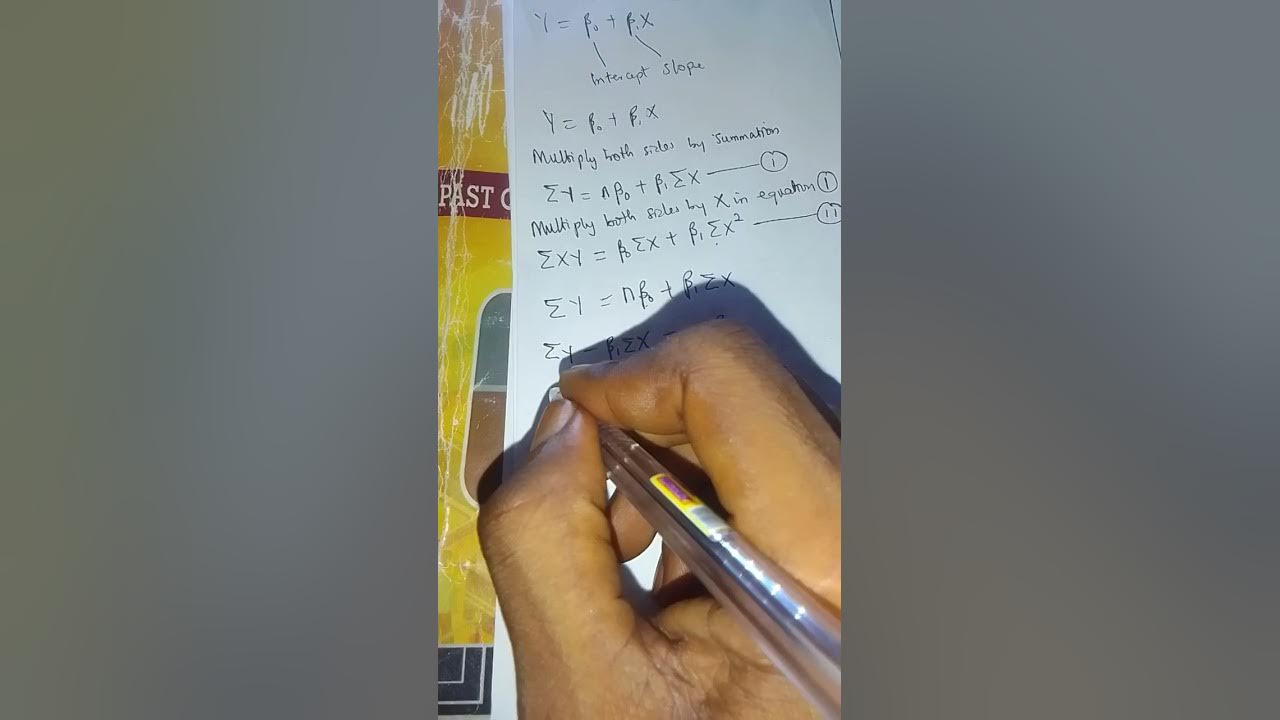 Y = β₀ + β₁X
Intercept slope
Y = β₀ + β₁X
Multiply both sides by Summation
ΣY = nβ₀ + β₁ΣX —— (I)
Multiply both sides by X in equation (I)
ΣXY = β₀ΣX + β₁ΣX² —— (II)
ΣY = nβ₀ + β₁ΣX
ΣY − β₁ΣX =
PAST